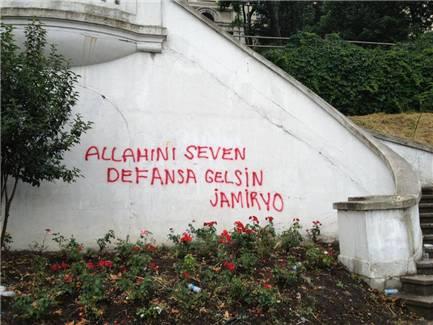 ALLAHINI SEVEN
DEFANSA GELSİN
JAMİRYO